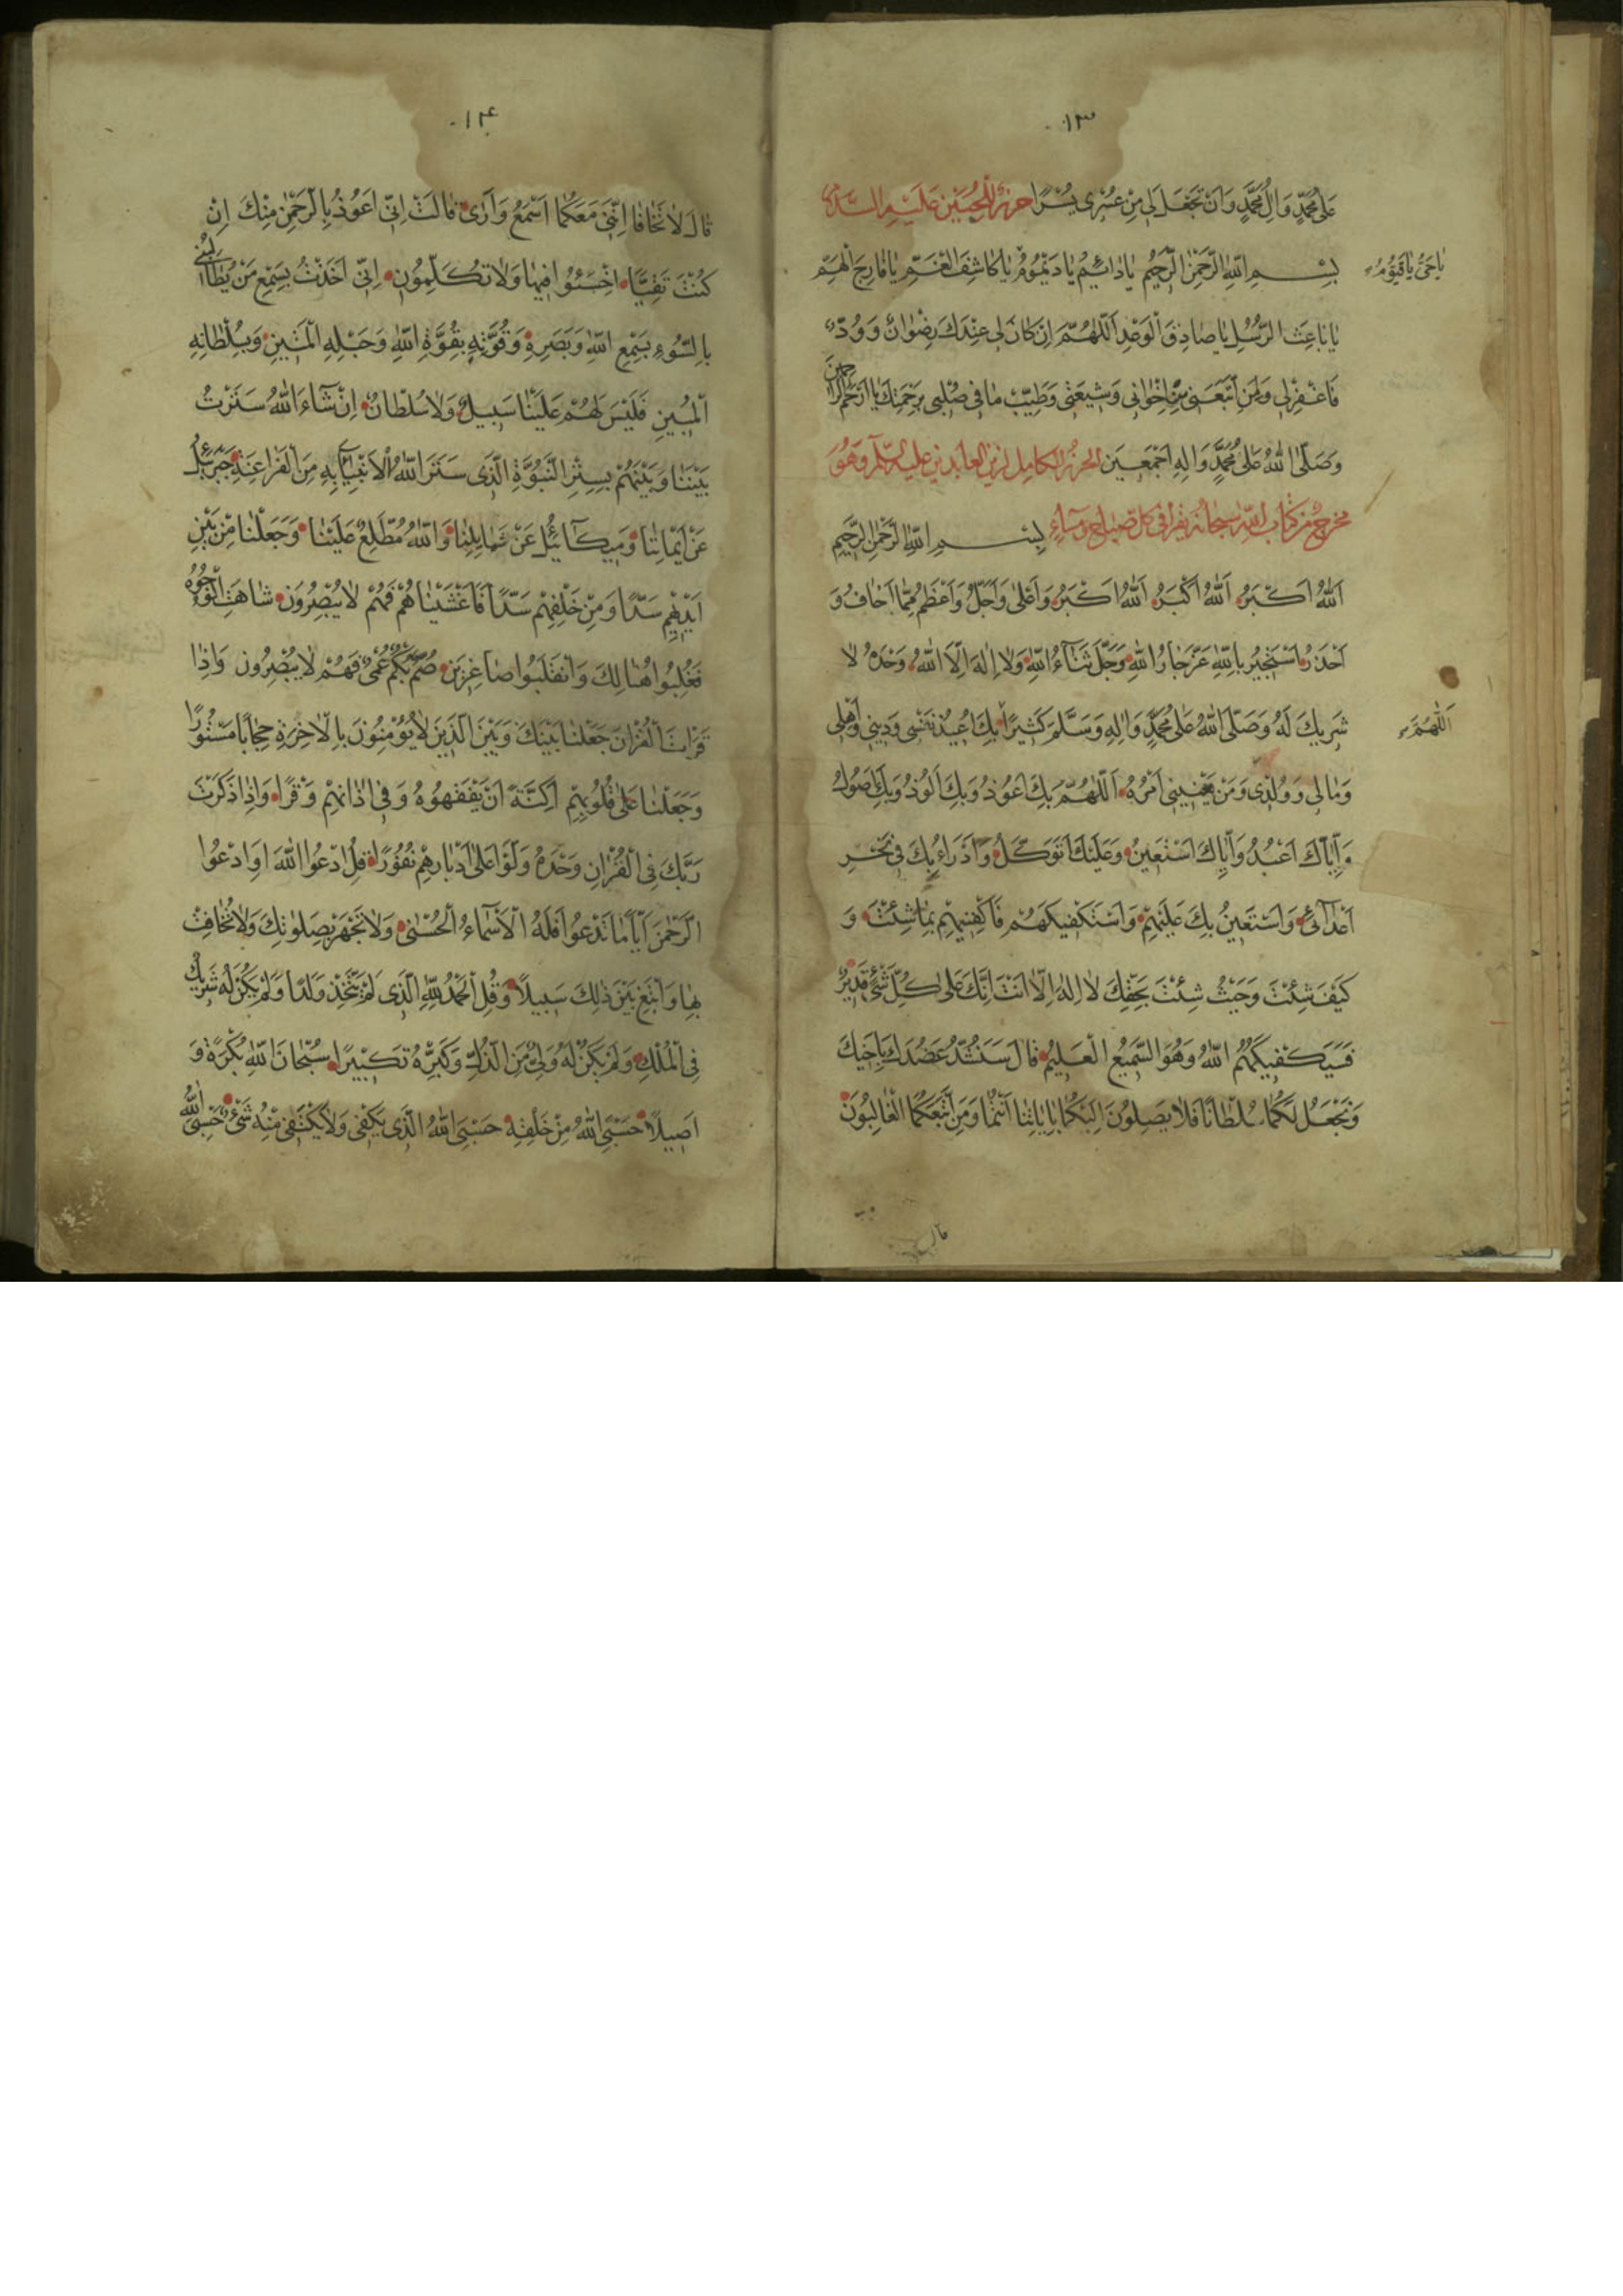 ۱۳
عَلىٰ مُحَمَّدٍ وَاٰلِ مُحَمَّدٍ وَاَنْ تَجْعَلَ لى مِنْ عُسْرى يُسْرًا حرز للحسين عليه السلام
بِسْمِ اللّٰهِ الرَّحْمٰنِ الرَّحيمِ يا دائِمُ يا دَيْمُومُ يا كاشِفَ الْغَمِّ يا فارِجَ الْهَمِّ
يا حَىُّ يا قَيُّومُ
يا باعِثَ الرُّسُلِ يا صادِقَ الْوَعْدِ اَللّٰهُمَّ اِنْ كانَ لى عِنْدَكَ رِضْوانٌ وَوُدٌّ
فَاغْفِرْلى وَلِمَنِ اتَّبَعَنى مِنْ اِخْوانى وَشيعَتى وَطَيِّبْ ما فى صُلْبى بِرَحْمَتِكَ يا اَرْحَمَ الرّاحمين
وَصَلَّى اللّٰهُ عَلىٰ مُحَمَّدٍ وَالِهِ اَجْمَعينَ الحرز الكامل لزين العابدين عليه السلم وهو
مخرج من كتاب الله سبحانه يقرا فى كل صباح ومساء بِسْمِ اللّٰهِ الرَّحْمٰنِ الرَّحيمِ
اَللّٰهُ اَكْبَرُ اَللّٰهُ اَكْبَرُ اَللّٰهُ اَكْبَرُ وَاَعْلىٰ وَاَجَلُّ وَاَعْظَمُ مِمّا اَخافُ وَ
اَحْذَرُ اَسْتَجيرُ بِاللّٰهِ عَزَّ جارُ اللّٰهِ وَجَلَّ ثَناءُ اللّٰهِ وَلا اِلٰهَ اِلَّا اللّٰهُ وَحْدَهُ لا
شَريكَ لَهُ وَصَلَّى اللّٰهُ عَلىٰ مُحَمَّدٍ وَاٰلِهِ وَسَلَّمَ كَثيرًا بِكَ اُعيذُ نَفْسى وَدينى وَاَهْلى
اَللّٰهُمَّ
وَمالى وَوُلْدى وَمَنْ يَعْنينى اَمْرُهُ اَللّٰهُمَّ بِكَ اَعُوذُ وَبِكَ اَلُوذُ وَبِكَ اَصُولُ
وَاِيّاكَ اَعْبُدُ وَاِيّاكَ اَسْتَعينُ وَعَلَيْكَ اَتَوَكَّلُ وَاَدْرَاءُ بِكَ فى نَحْرِ
اَعْدائى وَاَسْتَعينُ بِكَ عَلَيْهِمْ وَاَسْتَكْفيكَهُمْ فَاَكْفِنيهِمْ بِما شِئْتَ وَ
كَيْفَ شِئْتَ وَحَيْثُ شِئْتَ بِحَقِّكَ لا اِلٰهَ اِلّا اَنْتَ اِنَّكَ عَلىٰ كُلِّ شَىْءٍ قَديرٌ
فَسَيَكْفيكَهُمُ اللّٰهُ وَهُوَ السَّميعُ الْعَليمُ قالَ سَنَشُدُّ عَضُدَكَ بِاَخيكَ
وَنَجْعَلُ لَكُما سُلْطانًا فَلا يَصِلُونَ اِلَيْكُما بِاٰياتِنا اَنْتُما وَمَنِ اتَّبَعَكُمَا الْغالِبُونَ
قال لا
۱۴
قالَ لا تَخافا اِنَّنى مَعَكُما اَسْمَعُ وَاَرىٰ قالَتْ اِنّى اَعُوذُ بِالرَّحْمٰنِ مِنْكَ اِنْ
كُنْتَ تَقِيًّا اخْسَئُوا فيها وَلا تُكَلِّمُونِ اِنّى اَخَذْتُ بِسَمْعِ مَنْ يُطالِبُنى
بِالسُّوءِ بِسَمْعِ اللّٰهِ وَبَصَرِهِ وَقُوَّتِهِ بِقُوَّةِ اللّٰهِ وَحَبْلِهِ الْمَتينِ وَبِسُلْطانِهِ
الْمُبينِ فَلَيْسَ لَهُمْ عَلَيْنا سَبيلٌ وَلا سُلْطانٌ اِنْ شاءَ اللّٰهُ سَتَرْتُ
بَيْنَنا وَبَيْنَهُمْ بِسِتْرِ النُّبُوَّةِ الَّذى سَتَرَ اللّٰهُ الْاَنْبِياءَ بِهِ مِنَ الْفَراعِنَةِ جَبْرَئيلُ
عَنْ اَيْمانِنا وَميكائيلُ عَنْ شَمائِلِنا وَاللّٰهُ مُطَّلِعٌ عَلَيْنا وَجَعَلْنا مِنْ بَيْنِ
اَيْديهِمْ سَدًّا وَمِنْ خَلْفِهِمْ سَدًّا فَاَغْشَيْناهُمْ فَهُمْ لا يُبْصِرُونَ شاهَتِ الْوُجُوهُ
فَغُلِبُوا هُنالِكَ وَانْقَلَبُوا صاغِرينَ صُمٌّ بُكْمٌ عُمْىٌ فَهُمْ لا يُبْصِرُونَ وَاِذا
قَرَاْتَ الْقُرْاٰنَ جَعَلْنا بَيْنَكَ وَبَيْنَ الَّذينَ لا يُؤْمِنُونَ بِالْاٰخِرَةِ حِجابًا مَسْتُورًا
وَجَعَلْنا عَلىٰ قُلُوبِهِمْ اَكِنَّةً اَنْ يَفْقَهُوهُ وَفى اٰذانِهِمْ وَقْرًا وَاِذا ذَكَرْتَ
رَبَّكَ فِى الْقُرْاٰنِ وَحْدَهُ وَلَّوْا عَلىٰ اَدْبارِهِمْ نُفُورًا قُلِ ادْعُوا اللّٰهَ اَوِ ادْعُوا
الرَّحْمٰنَ اَيًّا ما تَدْعُوا فَلَهُ الْاَسْماءُ الْحُسْنىٰ وَلا تَجْهَرْ بِصَلوٰتِكَ وَلا تُخافِتْ
بِها وَابْتَغِ بَيْنَ ذٰلِكَ سَبيلًا وَقُلِ الْحَمْدُ لِلّٰهِ الَّذى لَمْ يَتَّخِذْ وَلَدًا وَلَمْ يَكُنْ لَهُ شَريكٌ
فِى الْمُلْكِ وَلَمْ يَكُنْ لَهُ وَلِىٌّ مِنَ الذُّلِّ وَكَبِّرْهُ تَكْبيرًا سُبْحانَ اللّٰهِ بُكْرَةً وَ
اَصيلًا حَسْبِىَ اللّٰهُ مِنْ خَلْقِهِ حَسْبِىَ اللّٰهُ الَّذى يَكْفى وَلا يَكْتَفى مِنْهُ شَىْءٌ حَسْبِىَ اللّٰهُ